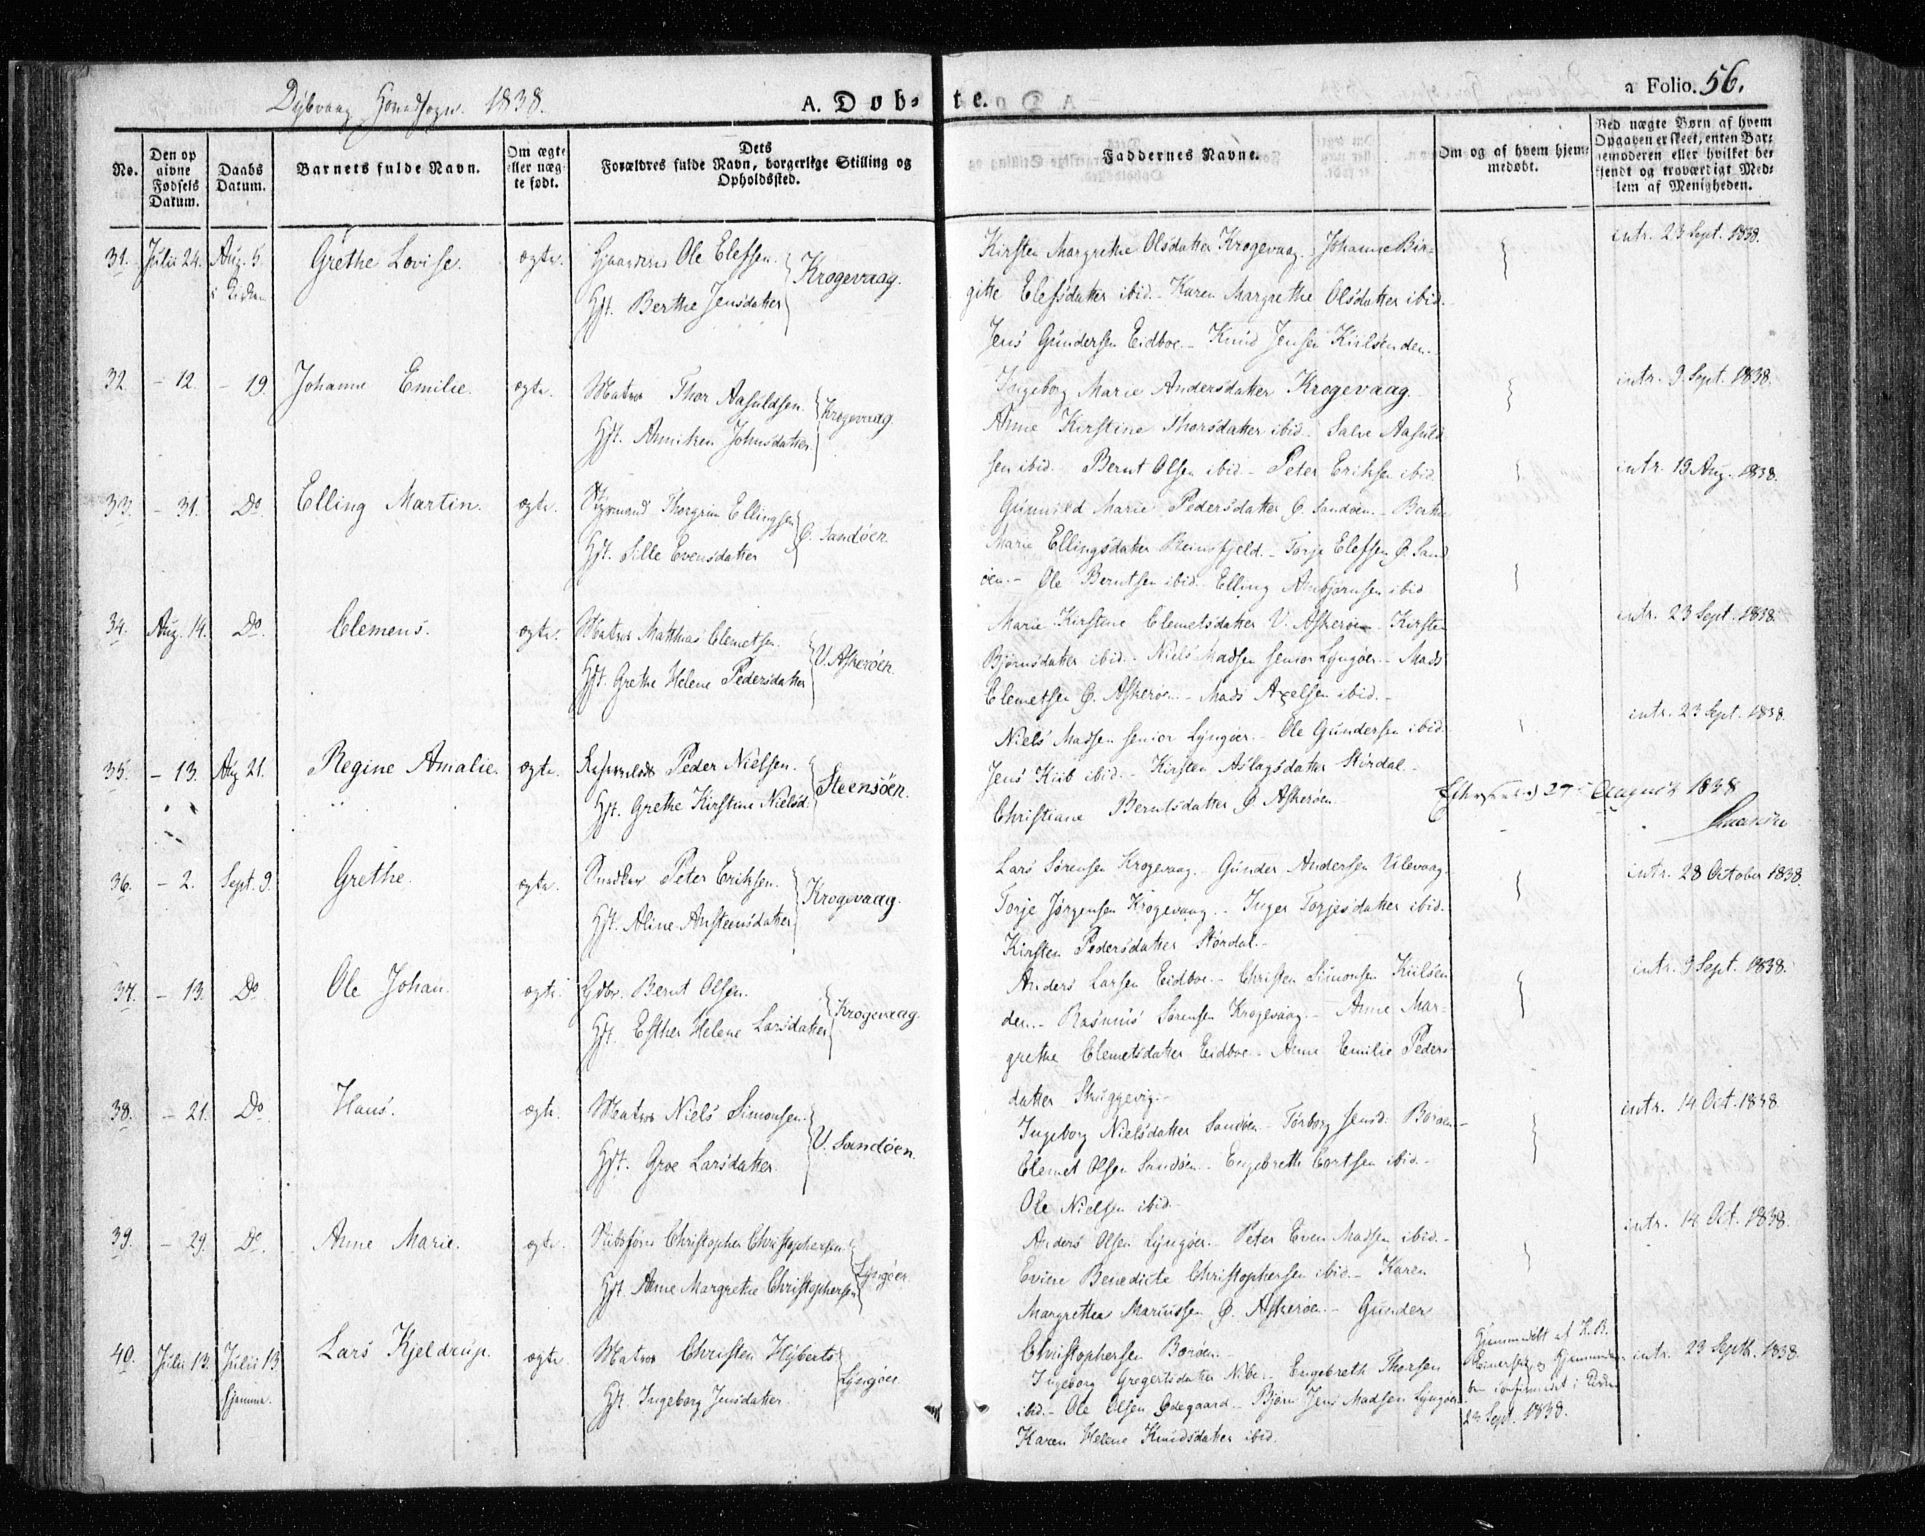 Dybvaag Hovedsogn. 1838.
A. Døb-te.
a Folio. 56.
No.
Den op
givne
Fødsels
Datum.
Daabs
Datum.
Barnets fulde Navn.
Om ægte
eller næg-
te født.
Dets
Forældres fulde Navn, borgerlige Stilling og
Opholdssted.
Faddernes Navne.
Om og af hvem hjem-
medøbt.
Ved nægte Børn af hvem
Opgaven er skeet, enten Bar-
nemoderen eller hvilket be-
kjendt og troværdigt Med-
lem af Menigheden.
31. Julii 24. Aug. 5. Grethe Lovise. ægte. Ole Elefsen. Krogevaag.
Hst. Berthe Jensdatter
Kirsten Margrethe Olsdatter Krogevaag. Johanne Bir-
gitte Elefsdatter ibid. Karen Margrethe Olsdatter ibid.
Jens Gundersen Eidboe. Knud Jensen Kiilsenden.
intr. 23 Sept. 1838.
32. – 12. – 19. Johanne Emilie. ægte. Matros Thor Aasuldsen. Krogevaag.
Hst. Anniken Johnsdatter
Ingeborg Marie Andersdatter Krogevaag.
Anne Kirstine Thorsdatter ibid. Salve Aasuld
sen ibid. Bernt Olsen ibid. Peter Eriksen ibid.
intr. 9 Sept. 1838.
33. – 31. Do. Elling Martin. ægte. Styrmand Thorgrim Ellingsen Ø. Sandøen.
Hst. Sille Evensdatter
Gunnild Marie Pedersdatter Ø. Sandøen. Berthe
Marie Ellingsdatter Reinsfjeld. Torje Elefsen Ø. Sand
øen. Ole Berntsen ibid. Elling Anbjørnsen ibid.
intr. 19 Aug. 1838.
34. Aug. 14. Do. Clemens. ægte. Matros Matthias Clemetsen. V. Askerøen.
Hst. Grethe Helene Pedersdatter
Marie Kirstine Clemetsdatter V. Askerøen. Kirsten
Bjørnsdatter ibid. Niels Madsen senior Lyngøer. Mads
Clemetsen Ø. Askerøen. Mads Axelsen ibid.
intr. 23 Sept. 1838.
35. – 13. Aug 21. Regine Amalie. ægte. Peder Nielsen. Steensøen.
Hst. Grethe Kirstine Nielsd.
Niels Madsen senior Lyngøer. Ole Gundersen ibid.
Jens Kiib ibid. Kirsten Aslagsdatter Størdal.
Christiane Berntsdatter Ø. Askerøen.
intr. 23 Sept. 1838.
27 August 1838
36. – 2. Sept. 9. Grethe. ægte. Snedker Peter Eriksen. Krogevaag.
Hst. Aline Anstensdatter
Lars Sørensen Krogevaag. Gunder Andersen Ulevaag.
Torje Jørgensen Krogevaag. Inger Torjesdatter ibid.
Kirsten Pedersdatter Størdal.
intr. 28 October 1838.
37. – 13. Do. Ole Johan. ægte. Gdbr. Bernt Olsen. Krogevaag.
Hst. Esther Helene Larsdatter
Anders Larsen Eidboe. Christen Simonsen Kiilsen
den. Rasmus Sørensen Krogevaag. Anne Mar-
grethe Clemetsdatter Eidboe. Anne Emilie Peders
datter Skuggevig.
intr. 9 Sept. 1838.
38. – 21. Do. Hans. ægte. Matros Niels Simonsen. V. Sandøen.
Hst. Groe Larsdatter.
Ingeborg Nielsdatter Sandøen. Torborg Jensd. Borøen.
Clemet Olsen Sandøen. Engebreth Cortsen ibid.
Ole Nielsen ibid.
intr. 14 Oct. 1838.
39. – 29. Do. Anne Marie. ægte. Christopher Christophersen. Lyngøer.
Hst. Anne Margrethe Christophersen
Anders Olsen Lyngøer. Peter Even Madsen ibid.
Benedicte Christophersen ibid. Karen
Margrethe Mariussen Ø. Askerøen. Gunder
Christophersen Borøen.
intr. 14 Oct. 1838.
40. Julii 13. Julii 13 hjemme. Lars Kjeldrup. ægte. Matros Christen Hyberts Lyngøer.
Hst. Ingeborg Jensdatter.
Ingeborg Gregertsdatter Nibe. Engebreth Thorsen
ibid. Ole Olsen Ødegaard. Bjørn Jens Madsen Lyngøer.
Karen Helene Knudsdatter ibid.
Hjemmedøbt af
confirmeret i Kirken
23 Sept. 1838.
intr. 23 Septb. 1838.